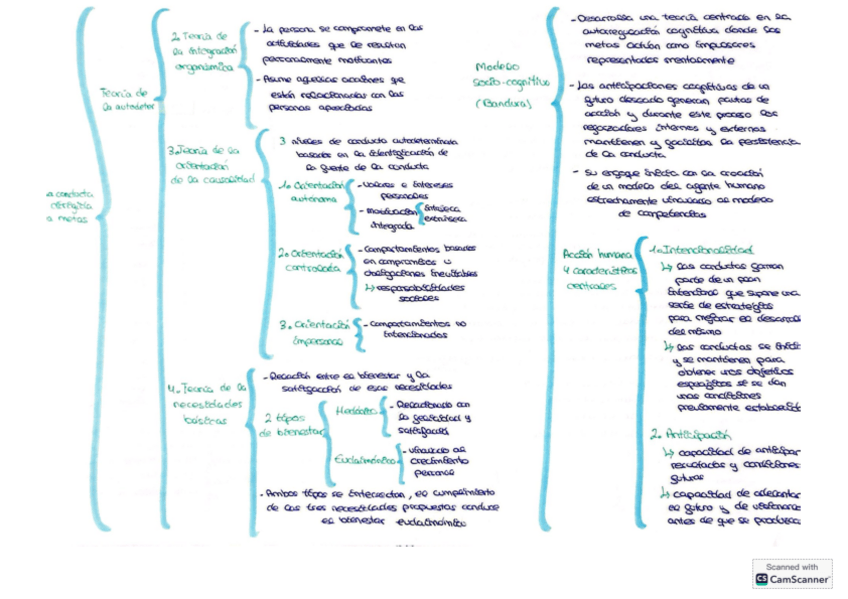 La conducta
dirigida
a metas
Teoría de
la autodeter
2. Teoría de
la integración
organísmica
- La persona se compromete en las
actividades que le resultan
personalmente motivantes
- Asume aquellas acciones que
están relacionadas con las
personas apreciadas
3. Teoría de la
orientación
de la causalidad
3 niveles de conducta autodeterminada
basados en la identificación de
la fuente de la conducta
1. Orientación
autónoma
- Valores e intereses
personales
- motivación
integrada
intrínseca
extrínseca
2. Orientación
controlada
- Comportamientos basados
en compromisos u
obligaciones ineludibles
↳ responsabilidades
sociales
3. Orientación
impersonal
- Comportamientos no
intencionados
4. Teoría de las
necesidades
básicas
- Relación entre el bienestar y la
satisfacción de esas necesidades
2 tipos
de bienestar
Hedónico
- Relacionado con
la felicidad y
satisfacción
Eudaimónico
- vinculado al
crecimiento
personal
- Ambos tipos se intersectan, el cumplimiento
de las tres necesidades propuestas conduce
el bienestar eudaimónico
Modelo
socio-cognitivo
(Bandura)
- Desarrolla una teoría centrada en la
autorregulación cognitiva donde las
metas actúan como impulsores
representados mentalmente
- Las anticipaciones cognitivas de un
futuro deseado generan pautas de
acción y durante este proceso los
reforzadores internos y externos
mantienen y facilitan la persistencia
de la conducta
- Su enfoque finaliza con la creación
de un modelo del agente humano
estrechamente vinculado al modelo
de competencias
Acción humana
4 características
centrales
1. Intencionalidad
↳ Las conductas forman
parte de un plan
intencional que supone una
serie de estrategias
para mejorar el desarroll
del mismo
↳ Las conductas se
y se mantienen para
obtener unos objetivos
específicos si se dan
unas condiciones
previamente establecid
2. Anticipación
↳ capacidad de anticipar
resultados y condiciones
futuras
↳ capacidad de adelantar
el futuro y de
antes de que se produzca
Scanned with
CS CamScanner